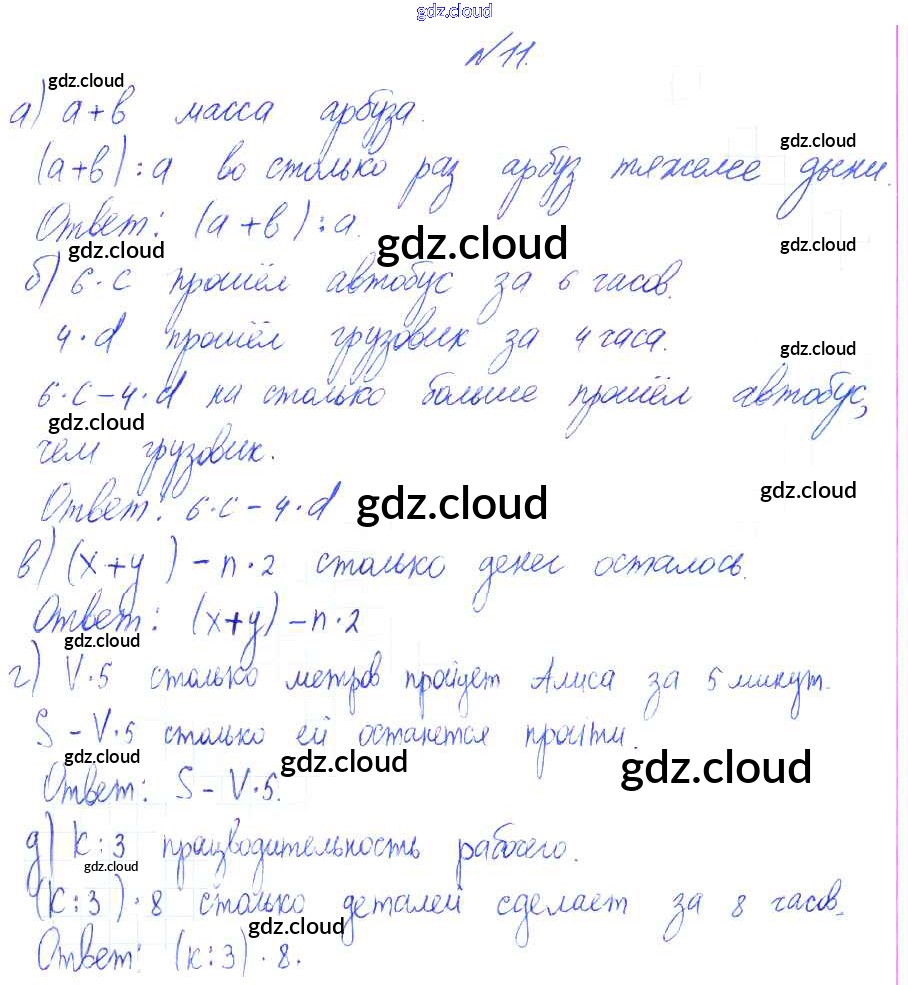 gdz.cloud
N 11.
gdz.cloud
а) а+в масса арбуза.
gdz.cloud
(а+в):а во столько раз арбуз тяжелее дыни.
Ответ: (а+в):а.
gdz.cloud gdz.cloud gdz.cloud
б) 6·с прошёл автобус за 6 часов.
4·d прошёл грузовик за 4 часа.
gdz.cloud
6·с-4·d на столько больше прошёл автобус,
gdz.cloud
чем грузовик.
Ответ: 6·с-4·d
gdz.cloud gdz.cloud
в) (x+y)-n·2 столько денег осталось.
Ответ: (x+y)-n·2
gdz.cloud
г) V·5 столько метров пройдет Алиса за 5 минут.
S-V·5 столько ей останется пройти.
gdz.cloud gdz.cloud gdz.cloud
Ответ: S-V·5.
д) k:3 працзводительность рабочего.
gdz.cloud
(k:3)·8 столько деталей сделает за 8 часов.
gdz.cloud
Ответ: (k:3)·8.